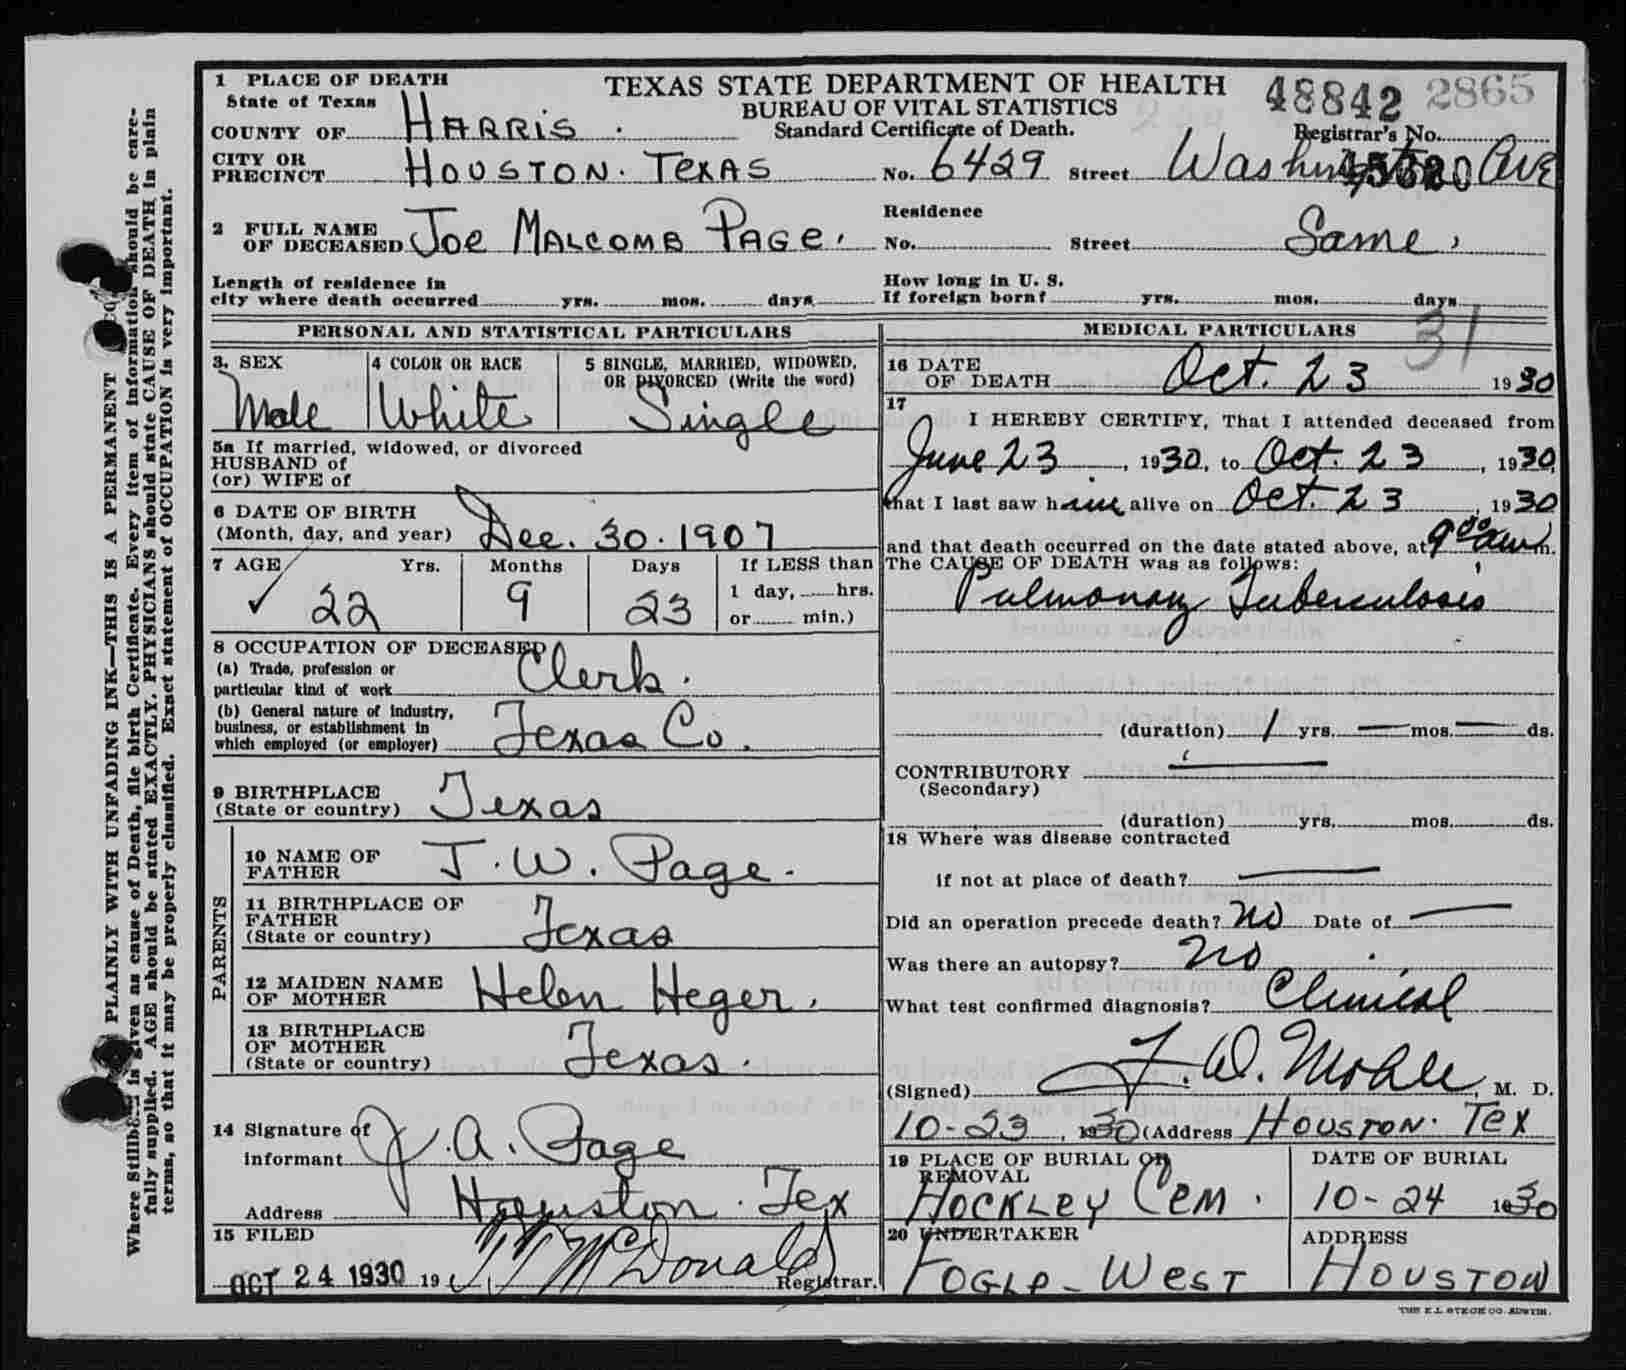 1 PLACE OF DEATH
TEXAS STATE DEPARTMENT OF HEALTH
48842 2865
State of Texas
BUREAU OF VITAL STATISTICS
COUNTY OF HARRIS.
Standard Certificate of Death.
Registrar's No.
CITY OR PRECINCT HOUSTON. TEXAS
No. 6429 Street Washington Ave
2 FULL NAME OF DECEASED JOE MALCOMB PAGE.
Residence
No. Street Same,
Length of residence in city where death occurred yrs. mos. days
How long in U. S. If foreign born? yrs. mos. days
PERSONAL AND STATISTICAL PARTICULARS
3. SEX
4 COLOR OR RACE
5 SINGLE, MARRIED, WIDOWED, OR DIVORCED (Write the word)
Male White Single
5a If married, widowed, or divorced
HUSBAND of
(or) WIFE of
6 DATE OF BIRTH
(Month, day, and year) Dec. 30. 1907
7 AGE Yrs. Months Days If LESS than
1 day, hrs.
or min.)
✓ 22 9 23
8 OCCUPATION OF DECEASED
(a) Trade, profession or
particular kind of work Clerk.
(b) General nature of industry,
business, or establishment in
which employed (or employer) Texas Co.
9 BIRTHPLACE
(State or country) Texas
PARENTS
10 NAME OF FATHER J. W. Page.
11 BIRTHPLACE OF FATHER
(State or country) Texas
12 MAIDEN NAME OF MOTHER Helen Heger.
13 BIRTHPLACE OF MOTHER
(State or country) Texas.
14 Signature of informant J. A. Page
Address Houston. Tex
15 FILED
OCT 24 1930 19 McDonald Registrar.
MEDICAL PARTICULARS
31
16 DATE OF DEATH Oct. 23 1930
17
I HEREBY CERTIFY, That I attended deceased from
June 23, 1930, to Oct. 23, 1930,
that I last saw him alive on Oct. 23, 1930
and that death occurred on the date stated above, at 9 00 am m.
The CAUSE OF DEATH was as follows:
Pulmonary Tuberculosis
(duration) 1 yrs. — mos. — ds.
CONTRIBUTORY —
(Secondary)
(duration) yrs. mos. ds.
18 Where was disease contracted
if not at place of death? —
Did an operation precede death? No Date of —
Was there an autopsy? No
What test confirmed diagnosis? Clinical
(Signed) F. W. Mohle, M. D.
10-23, 1930 (Address HOUSTON. TEX
19 PLACE OF BURIAL OR REMOVAL
HOCKLEY CEM.
DATE OF BURIAL
10-24 1930
20 UNDERTAKER
FOGLE-WEST
ADDRESS
HOUSTON
THE E.L. STECK CO. AUSTIN.
PLAINLY WITH UNFADING INK—THIS IS A PERMANENT
Where Stillborn is given as cause of Death, file birth Certificate. Every item of information should be care-
fully supplied. AGE should be stated EXACTLY. PHYSICIANS should state CAUSE OF DEATH in plain
terms, so that it may be properly classified. Exact statement of OCCUPATION is very important.